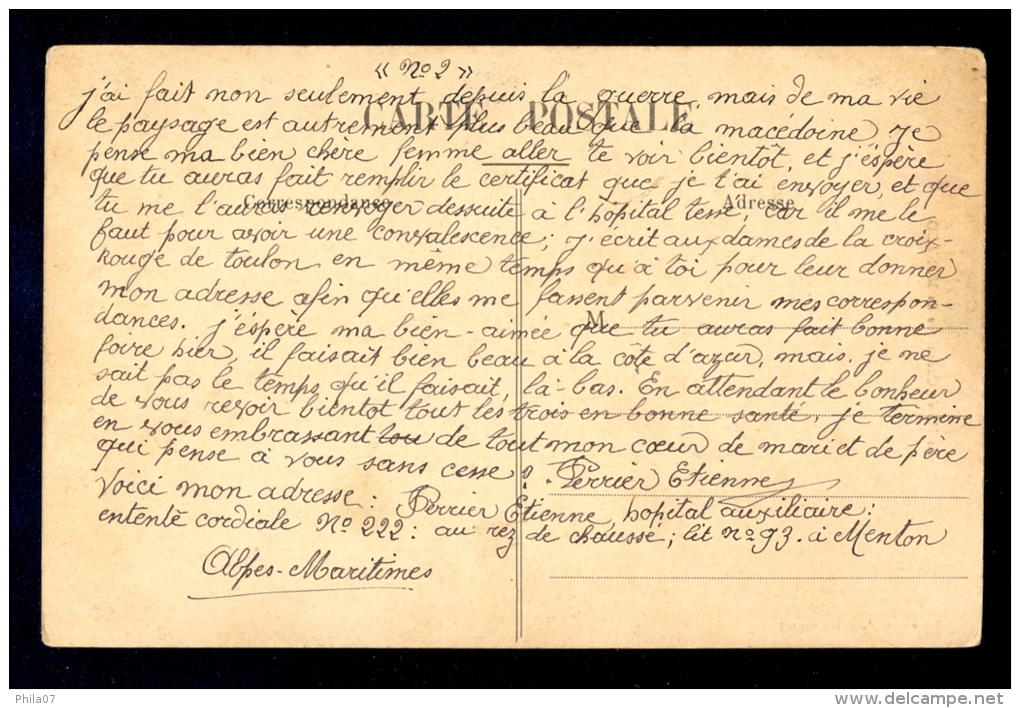 « No 2 »
j'ai fait non seulement depuis la guerre, mais de ma vie
CARTE POSTALE
le paysage est autrement plus beau que la macédoine, je
pense ma bien chere femme aller te voir bientôt, et j'éspère
que tu auras fait remplir le certificat que je t'ai envoyer, et que
Correspondance
Adresse
tu me l'auras renvoyer dessuite à l'hôpital tesse, car il me le
faut pour avoir une convalescence; j'écrit aux dames de la croix-
Rouge de toulon en même temps qu'à toi pour leur donner
mon adresse afin qu'elles me fassent parvenir mes correspon-
dances. j'éspère ma bien-aimée que tu auras fait bonne
M
foire hier, il faisait bien beau à la côte d'azur, mais je ne
sait pas le temps qu'il faisait, là-bas. En attendant le bonheur
de vous revoir bientot tout les trois en bonne santé, je termine
en vous embrassant tou de tout mon cœur de mari et de père
qui pense à vous sans cesse? Perrier Etienne
Voici mon adresse: Perrier Etienne, hopital auxiliaire:
entente cordiale No 222: au rez de chaussé; lit no 93. à Menton
Alpes-Maritimes
Phila07
www.delcampe.net